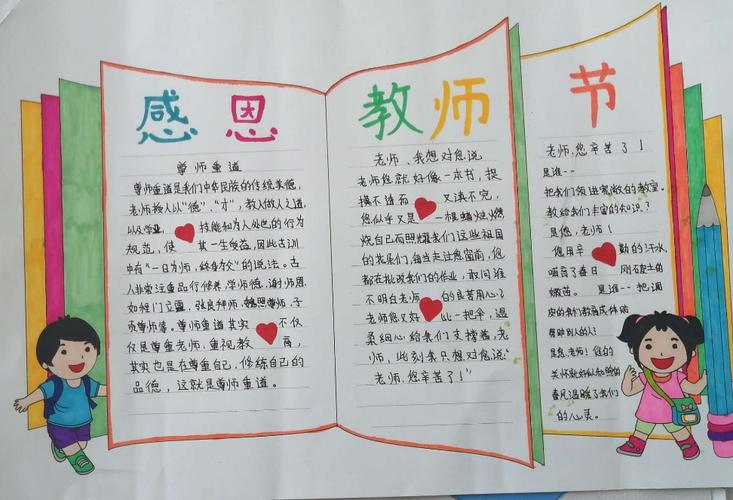 感恩教师节
尊师重道
尊师重道是我们中华民族的传统美德,
老师授人以“德”、“才”,教人做人之道,
以及学业 技能和为人处世的行为
规范,使 其一生受益,因此古训
中有“一日为师,终身为父”的说法。古
人非常注重品行修养,学师德,谢师恩
如程门立雪,张良拜师,魏照尊师,子
贡尊师等。尊师重道其实 不仅
仅是尊重老师,重视教 育,
其实也是在尊重自己,修练自己的
品德,这就是尊师重道。
老师、我想对您说
老师您就好像一本书,捉
摸不透而 又读不完,
您似乎又是 一根蜡烛燃
烧自己而照耀我们这些祖国
的花朵们,每当走过您窗前,您
都在批改我们的作业,敢问谁
不明白老师 的良苦用心?
老师您又好 比一把伞,温
柔细心给我们支撑着,老
师,此刻我只想对您说:
“老师,您辛苦了!”
老师,您辛苦了!
是谁--
把我们领进宽敞的教室。
教给我们丰富的知识?
是您,老师!
您用辛 勤的汗水,
哺育了春日 刚破土的
嫩苗。 是谁--把调
皮的我们教育成
帮助别人的人?
是您,老师!您的
关怀就好似和煦的
春风温暖了我们
的心灵。